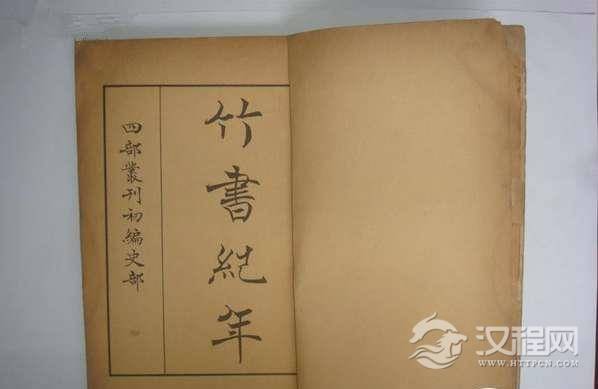 竹書紀年
四部叢刊初編史部
汉程网
WWW.HTTPCN.COM